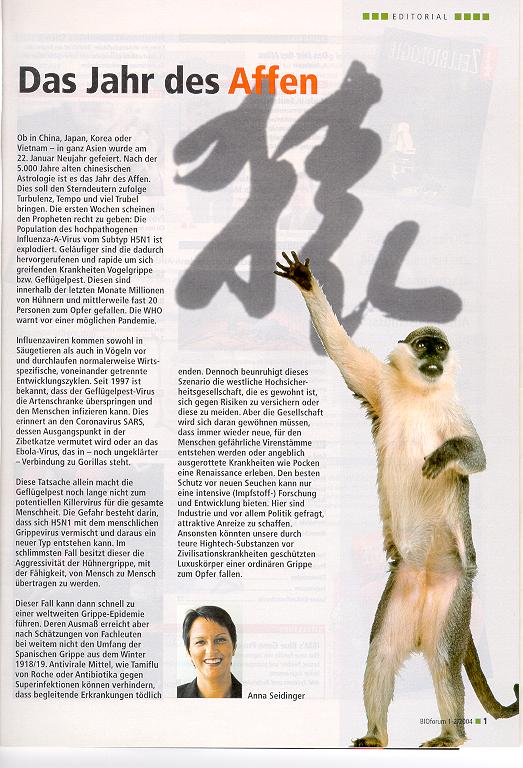 EDITORIAL
Das Jahr des Affen
Ob in China, Japan, Korea oder
Vietnam – in ganz Asien wurde am
22. Januar Neujahr gefeiert. Nach der
5.000 Jahre alten chinesischen
Astrologie ist es das Jahr des Affen.
Dies soll den Sterndeutern zufolge
Turbulenz, Tempo und viel Trubel
bringen. Die ersten Wochen scheinen
den Propheten recht zu geben: Die
Population des hochpathogenen
Influenza-A-Virus vom Subtyp H5N1 ist
explodiert. Geläufiger sind die dadurch
hervorgerufenen und rapide um sich
greifenden Krankheiten Vogelgrippe
bzw. Geflügelpest. Diesen sind
innerhalb der letzten Monate Millionen
von Hühnern und mittlerweile fast 20
Personen zum Opfer gefallen. Die WHO
warnt vor einer möglichen Pandemie.
Influenzaviren kommen sowohl in
Säugetieren als auch in Vögeln vor
und durchlaufen normalerweise Wirts-
spezifische, voneinander getrennte
Entwicklungszyklen. Seit 1997 ist
bekannt, dass der Geflügelpest-Virus
die Artenschranke überspringen und
den Menschen infizieren kann. Dies
erinnert an den Coronavirus SARS,
dessen Ausgangspunkt in der
Zibetkatze vermutet wird oder an das
Ebola-Virus, das in – noch ungeklärter
– Verbindung zu Gorillas steht.
Diese Tatsache allein macht die
Geflügelpest noch lange nicht zum
potentiellen Killervirus für die gesamte
Menschheit. Die Gefahr besteht darin,
dass sich H5N1 mit dem menschlichen
Grippevirus vermischt und daraus ein
neuer Typ entstehen kann. Im
schlimmsten Fall besitzt dieser die
Aggressivität der Hühnergrippe, mit
der Fähigkeit, von Mensch zu Mensch
übertragen zu werden.
Dieser Fall kann dann schnell zu
einer weltweiten Grippe-Epidemie
führen. Deren Ausmaß erreicht aber
nach Schätzungen von Fachleuten
bei weitem nicht den Umfang der
Spanischen Grippe aus dem Winter
1918/19. Antivirale Mittel, wie Tamiflu
von Roche oder Antibiotika gegen
Superinfektionen können verhindern,
dass begleitende Erkrankungen tödlich
enden. Dennoch beunruhigt dieses
Szenario die westliche Hochsicher-
heitsgesellschaft, die es gewohnt ist,
sich gegen Risiken zu versichern oder
diese zu meiden. Aber die Gesellschaft
wird sich daran gewöhnen müssen,
dass immer wieder neue, für den
Menschen gefährliche Virenstämme
entstehen werden oder angeblich
ausgerottete Krankheiten wie Pocken
eine Renaissance erleben. Den besten
Schutz vor neuen Seuchen kann nur
eine intensive (Impfstoff-) Forschung
und Entwicklung bieten. Hier sind
Industrie und vor allem Politik gefragt,
attraktive Anreize zu schaffen.
Ansonsten könnten unsere durch
teure Hightech-Substanzen vor
Zivilisationskrankheiten geschützten
Luxuskörper einer ordinären Grippe
zum Opfer fallen.
Anna Seidinger
BIOforum 1-2/2004 1